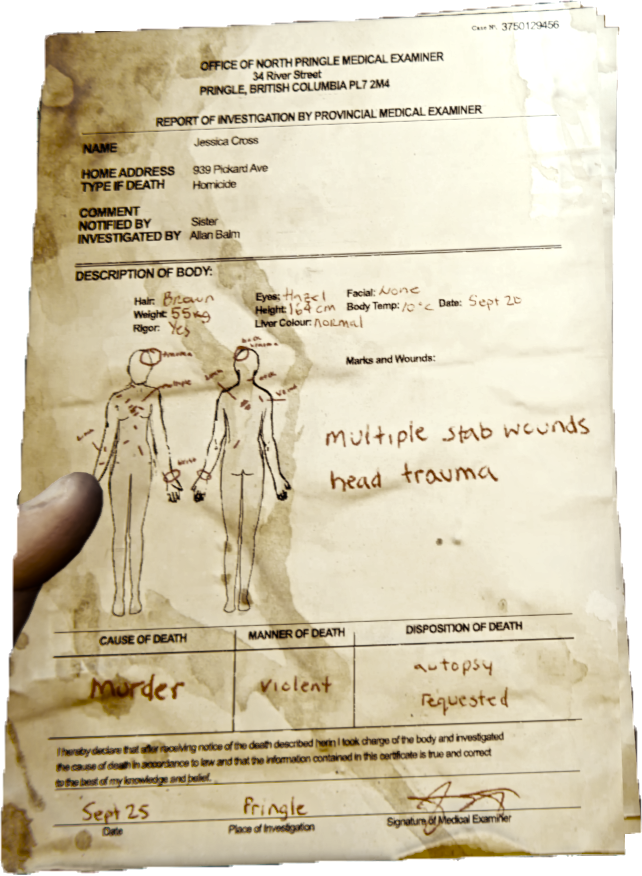 Case Nº. 3750129456
OFFICE OF NORTH PRINGLE MEDICAL EXAMINER
34 River Street
PRINGLE, BRITISH COLUMBIA PL7 2M4
REPORT OF INVESTIGATION BY PROVINCIAL MEDICAL EXAMINER
NAME Jessica Cross
HOME ADDRESS 939 Pickard Ave
TYPE IF DEATH Homicide
COMMENT
NOTIFIED BY Sister
INVESTIGATED BY Allan Balm
DESCRIPTION OF BODY:
Hair: Brown Eyes: Hazel Facial: None
Weight: 55kg Height: 164 cm Body Temp: 10°C Date: Sept 20
Rigor: Yes Liver Colour: normal
Marks and Wounds:
trauma
multiple
multiple stab wounds
head trauma
CAUSE OF DEATH MANNER OF DEATH DISPOSITION OF DEATH
Murder violent autopsy
requested
I hereby declare that after receiving notice of the death described herin I took charge of the body and investigated
the cause of death in accordance to law and that the information contained in this certificate is true and correct
to the best of my knowledge and belief.
Sept 25 Pringle
Date Place of Investigation Signature of Medical Examiner